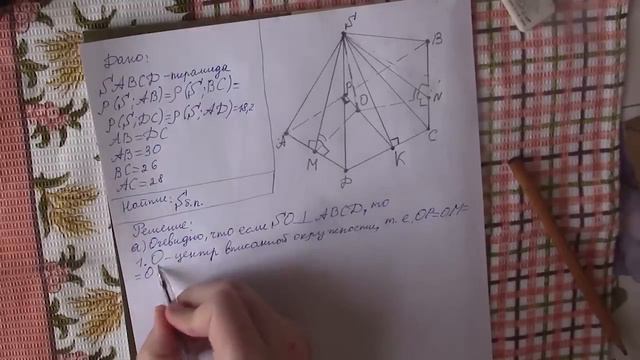 Дано:
SABCD - пирамида
ρ(S; AB) = ρ(S; BC) =
ρ(S; DC) = ρ(S; AD) = 18,2
AB = DC
AB = 30
BC = 26
AC = 28
Найти: Sб.п.
Решение:
а) Очевидно, что если SO ⊥ ABCD, то
1. O - центр вписанной окружности, т. е. OP = OM =
= O
S
B
P
O
N
A
M
K
C
D